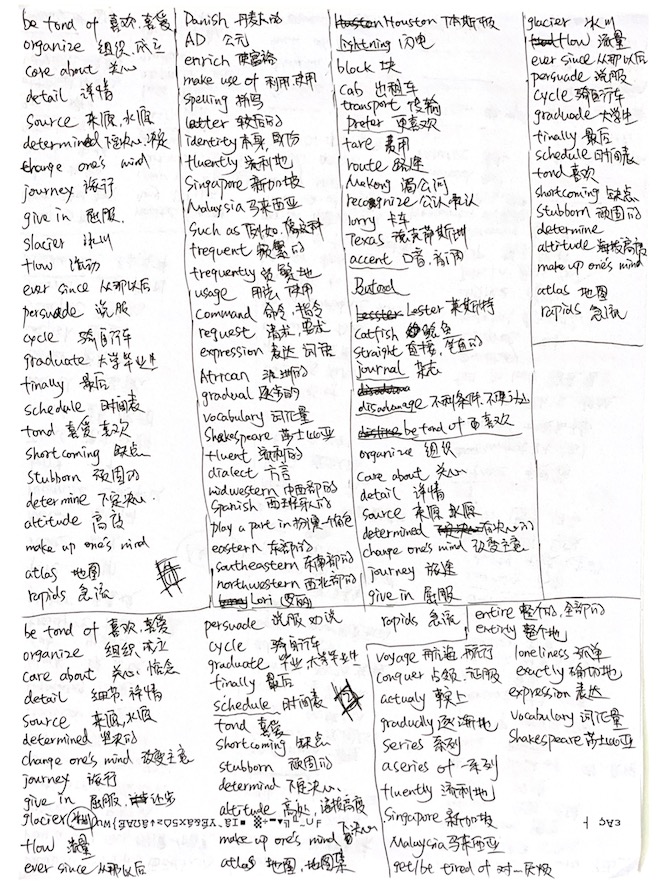 be fond of 喜欢,喜爱
organize 组织,成立
care about 关心
detail 详情
source 来源,水源
determined 下定决心,决定
change one's mind
journey 旅行
give in 屈服.
glacier 冰川
flow 流动
ever since 从那以后
persuade 说服
cycle 骑自行车
graduate 大学毕业生
finally 最后
schedule 时间表
fond 喜爱 喜欢
shortcoming 缺点
stubborn 顽固的
determine 下定决心.
altitude 高度
make up one's mind
atlas 地图
rapids 急流
Danish 丹麦人的
AD 公元
enrich 使富裕
make use of 利用,使用
spelling 拼写
latter 较后的
identity 本身,身份
fluently 流利地
Singapore 新加坡
Malaysia 马来西亚
such as 例如,像这种
frequent 频繁的
frequently 频繁地
usage 用法 使用
command 命令,指令
request 请求,要求
expression 表达 词语
African 非洲的
gradual 逐步的
vocabulary 词汇量
Shakespeare 莎士比亚
fluent 流利的
dialect 方言
midwestern 中西部的
Spanish 西班牙人的
play a part in 扮演一个角色
eastern 东部的
southeastern 东南部的
northwestern 西北部的
Lori 罗丽
Houston Houston 休斯顿
lightning 闪电
block 块
cab 出租车
transport 传输
prefer 更喜欢
fare 费用
route 路途
Mekong 湄公河
recognize 公认 承认
lorry 卡车
Texas 德克萨斯州
accent 口音,音调
Buford
Lester 莱斯特
catfish 鲶鱼
straight 直接,笔直的
journal 杂志
disadvanage 不利条件,不理想处
be fond of 更喜欢
organize 组织
care about 关心
detail 详情
source 来源 水源
determined 有决心的
change one's mind 改变主意
journey 旅途
give in 屈服
glacier 冰川
flow 流量
ever since 从那以后
persuade 说服
cycle 骑自行车
graduade 大学生
finally 最后
schedule 时间表
fond 喜欢
shortcoming 缺点
stubborn 顽固的
determine
altitude 海拔高度
make up one's mind
atlas 地图
rapids 急流
be fond of 喜欢,喜爱
organize 组织,成立
care about 关心,惦念
detail 细节,详情
source 来源,水源
determined 坚决的
change one's mind 改变主意
journey 旅行
give in 屈服,让步
glacier 冰川
flow 流量
ever since 从那以后
persuade 说服 劝说
cycle 骑自行车
graduate 毕业 大学毕业生
finally 最后
schedule 时间表
fond 喜爱
shortcoming 缺点
stubborn 顽固的
determind 下定决心.
altitude 高处,海拔高度
make up one's mind 下决心
atlas 地图,地图集
rapids 急流
entire 整个的,全部的
entirly 整个地
voyage 航海 航行
conquer 占领,征服
actualy 事实上
gradually 逐渐地
series 系列
a series of 一系列
fluently 流利地
Singapore 新加坡
Malaysia 马来西亚
get/be tired of 对…厌烦
loneliness 孤单
exactly 确切地
expression 表达
vocabulary 词汇量
Shakespeare 莎士比亚